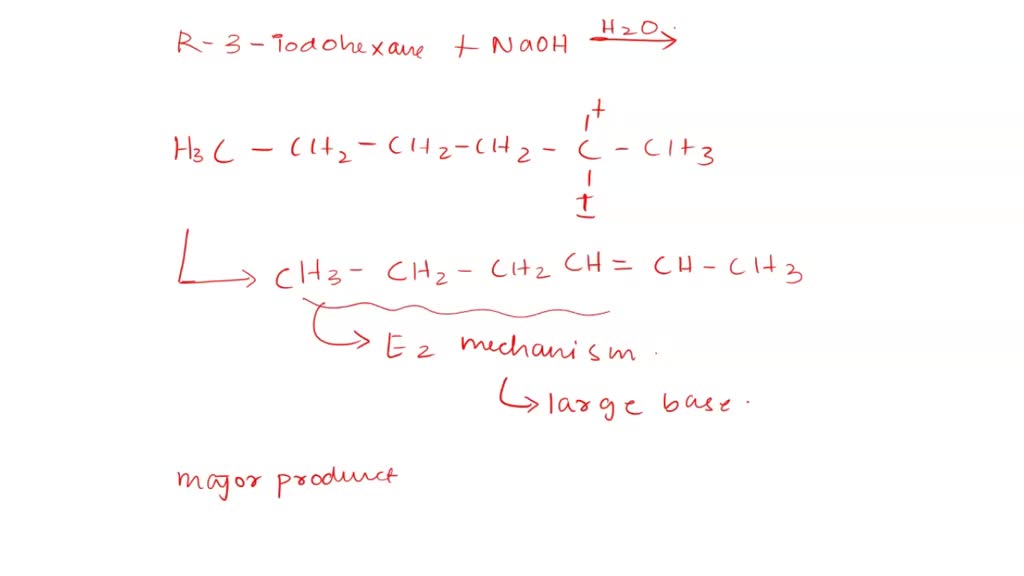 R-3-iodohexane + NaOH H2O →
H
H3C - CH2 - CH2 - CH2 - C - CH3
I
CH3 - CH2 - CH2 CH = CH - CH3
E2 mechanism.
large base.
major product